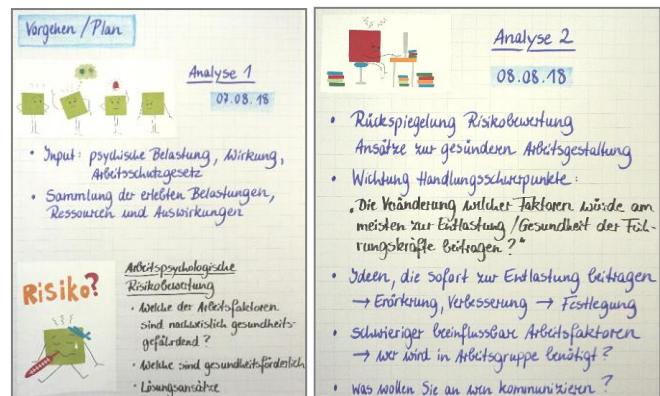 Vorgehen / Plan
Analyse 1
07.08.18
• Input: psychische Belastung, Wirkung,
Arbeitsschutzgesetz
• Sammlung der erlebten Belastungen,
Ressourcen und Auswirkungen
Risiko?
Arbeitspsychologische
Risikobewertung
• Welche der Arbeitsfaktoren
sind nachweislich gesundheits-
gefährdend?
• Welche sind gesundheitsförderlich
• Lösungsansätze
Analyse 2
08.08.18
• Rückspiegelung Risikobewertung
Ansätze zur gesünderen Arbeitsgestaltung
• Wichtung Handlungsschwerpunkte:
„Die Veränderung welcher Faktoren würde am
meisten zur Entlastung / Gesundheit der Füh-
rungskräfte beitragen?"
• Ideen, die sofort zur Entlastung beitragen
→ Erörterung, Verbesserung → Festlegung
• schwieriger beeinflussbare Arbeitsfaktoren
→ wer wird in Arbeitsgruppe benötigt?
• Was wollen Sie an wen kommunizieren?